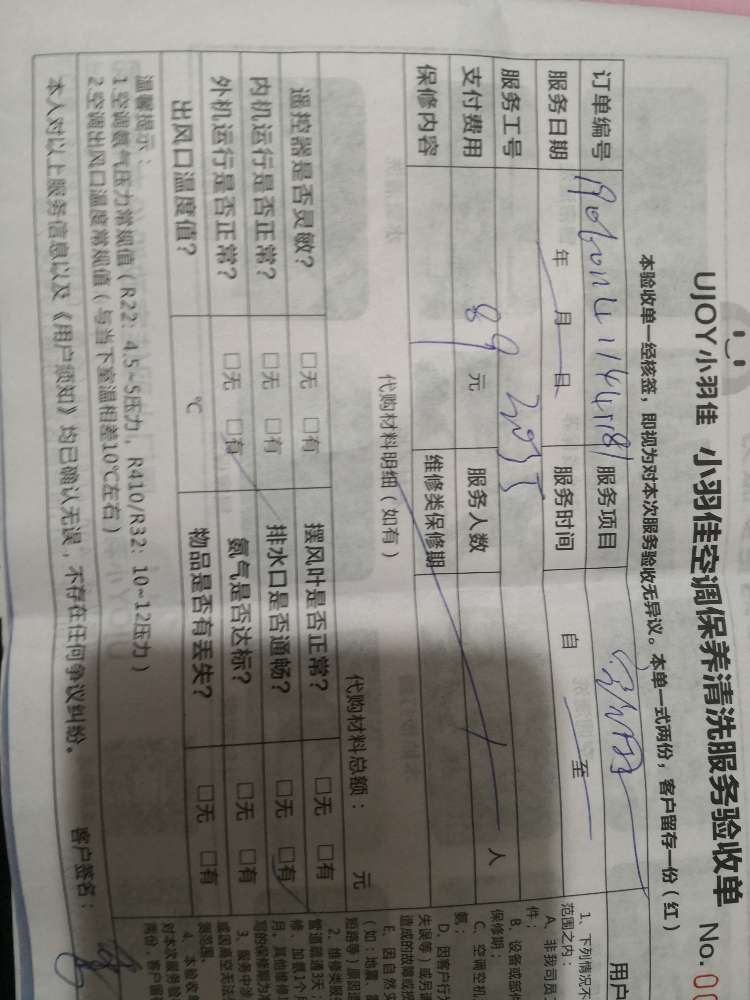 UJOY小羽佳 小羽佳空调保养清洗服务验收单 No.00
本验收单一经核签，即视为对本次服务验收无异议。本单一式两份，客户留存一份（红）
订单编号 服务项目 用户
服务日期 年 月 日 服务时间 自 至
服务工号
支付费用 89 元 服务人数 人
保修内容 维修类保修期
代购材料明细（如有） 代购材料总额： 元
遥控器是否灵敏？ □无 □有 摆风叶是否正常？ □无 □有
内机运行是否正常？ □无 □有 排水口是否通畅？ □无 □有
外机运行是否正常？ □无 □有 氨气是否达标？ □无 □有
出风口温度值？ ℃ 物品是否有丢失？ □无 □有
温馨提示：
1.空调氨气压力常规值（R22：4.5~5压力，R410/R32：10~12压力）
2.空调出风口温度常规值（与当下室温相差10℃左右）
本人对以上服务信息以及《用户须知》均已确认无误，不存在任何争议纠纷。 客户签名：
1、下列情况不
范围之内：
A、非我司员
件；
B、设备或部件
保修期；
C、空调空机
氨；
D、因客户行
失误等）或另
造成的故障或
E、因自然灾
（如：地震、
短路等）原因
2、维修类服
管道疏通3天
修，加氨1个
月，其他维修
写的保修期为
3、服务中涉
或因高空无法
测范围。
4、本验收单
对本次服务验
两份，客户留